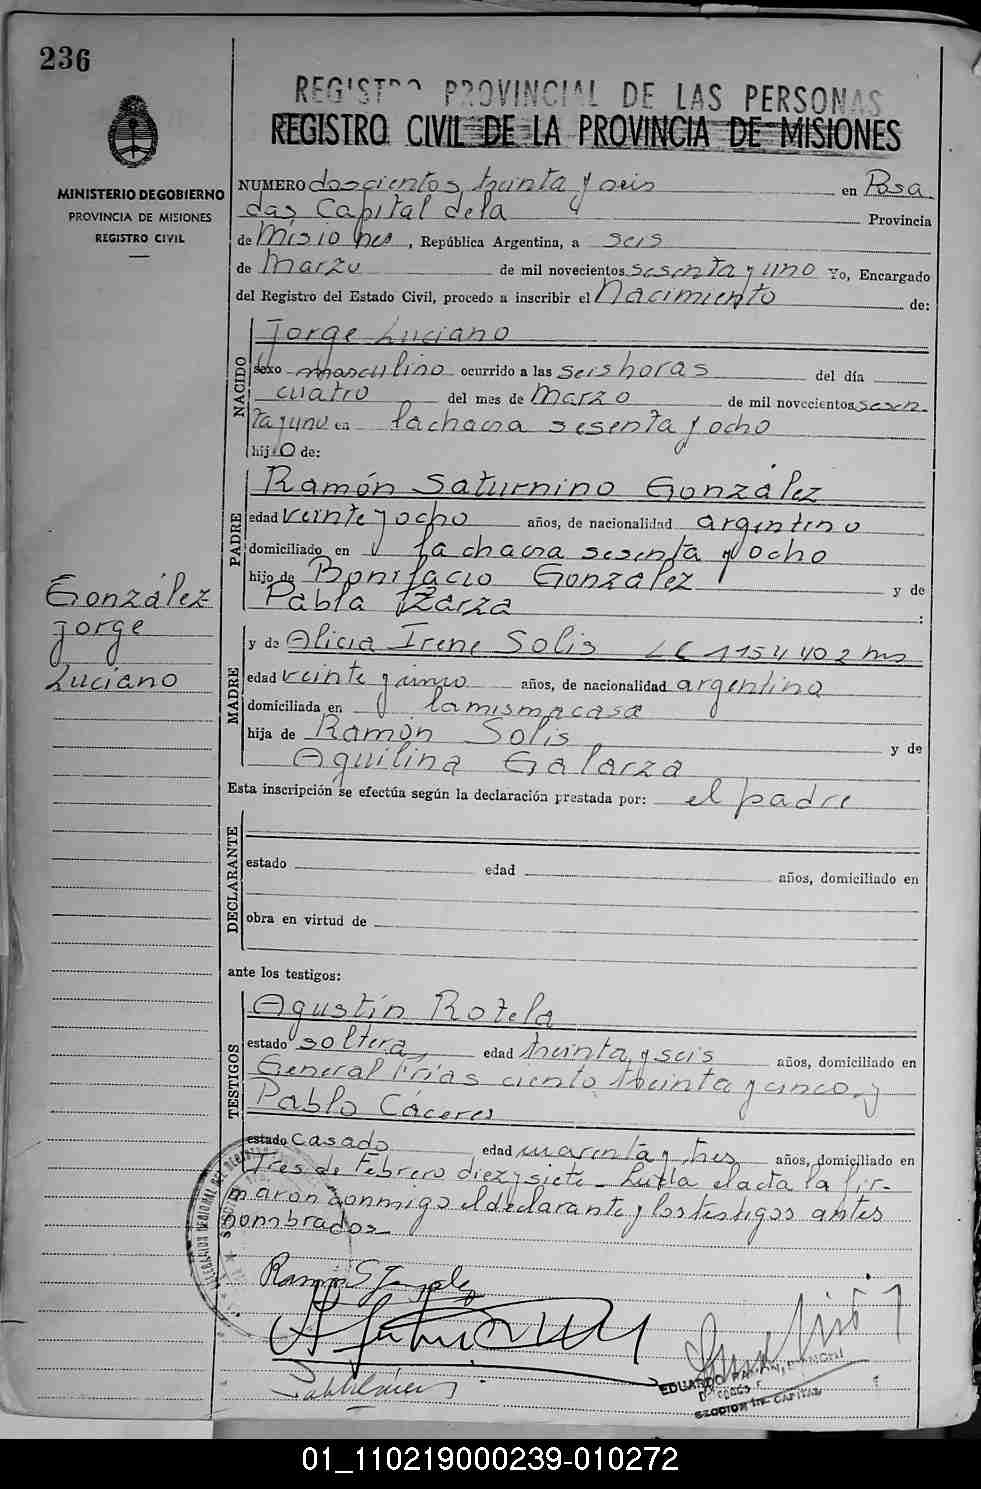 236
REGISTRO PROVINCIAL DE LAS PERSONAS
REGISTRO CIVIL DE LA PROVINCIA DE MISIONES
MINISTERIO DE GOBIERNO
PROVINCIA DE MISIONES
REGISTRO CIVIL
NUMERO doscientos treinta y seis en Posa
das, Capital de la Provincia
de Misiones, República Argentina, a seis
de Marzo de mil novecientos sesenta y uno Yo, Encargado
del Registro del Estado Civil, procedo a inscribir el Nacimiento de:
NACIDO
Jorge Luciano
sexo masculino ocurrido a las seis horas del día
cuatro del mes de Marzo de mil novecientos sesen-
ta y uno en la chacra sesenta y ocho
hijo de:
PADRE
Ramón Saturnino González
edad veinte y ocho años, de nacionalidad argentino
domiciliado en la chacra sesenta y ocho
hijo de Bonifacio González y de
Pabla Zarza :
González
Jorge
Luciano
MADRE
y de Alicia Irene Solis LC 1154402
edad veinte y cinco años, de nacionalidad argentina
domiciliada en la misma casa
hija de Ramón Solis y de
Aquilina Galarza
Esta inscripción se efectúa según la declaración prestada por: el padre
DECLARANTE
estado edad años, domiciliado en
obra en virtud de
ante los testigos:
TESTIGOS
Agustín Rotela
estado soltero, edad treinta y seis años, domiciliado en
General Frias ciento treinta y cinco y
Pablo Cáceres
estado casado edad cuarenta y tres años, domiciliado en
Tres de Febrero diez y siete - Leída el acta la fir-
maron conmigo el declarante y los testigos antes
nombrados
Ramón S González
EDUARDO
SECCION CAPITAL
01_110219000239-010272